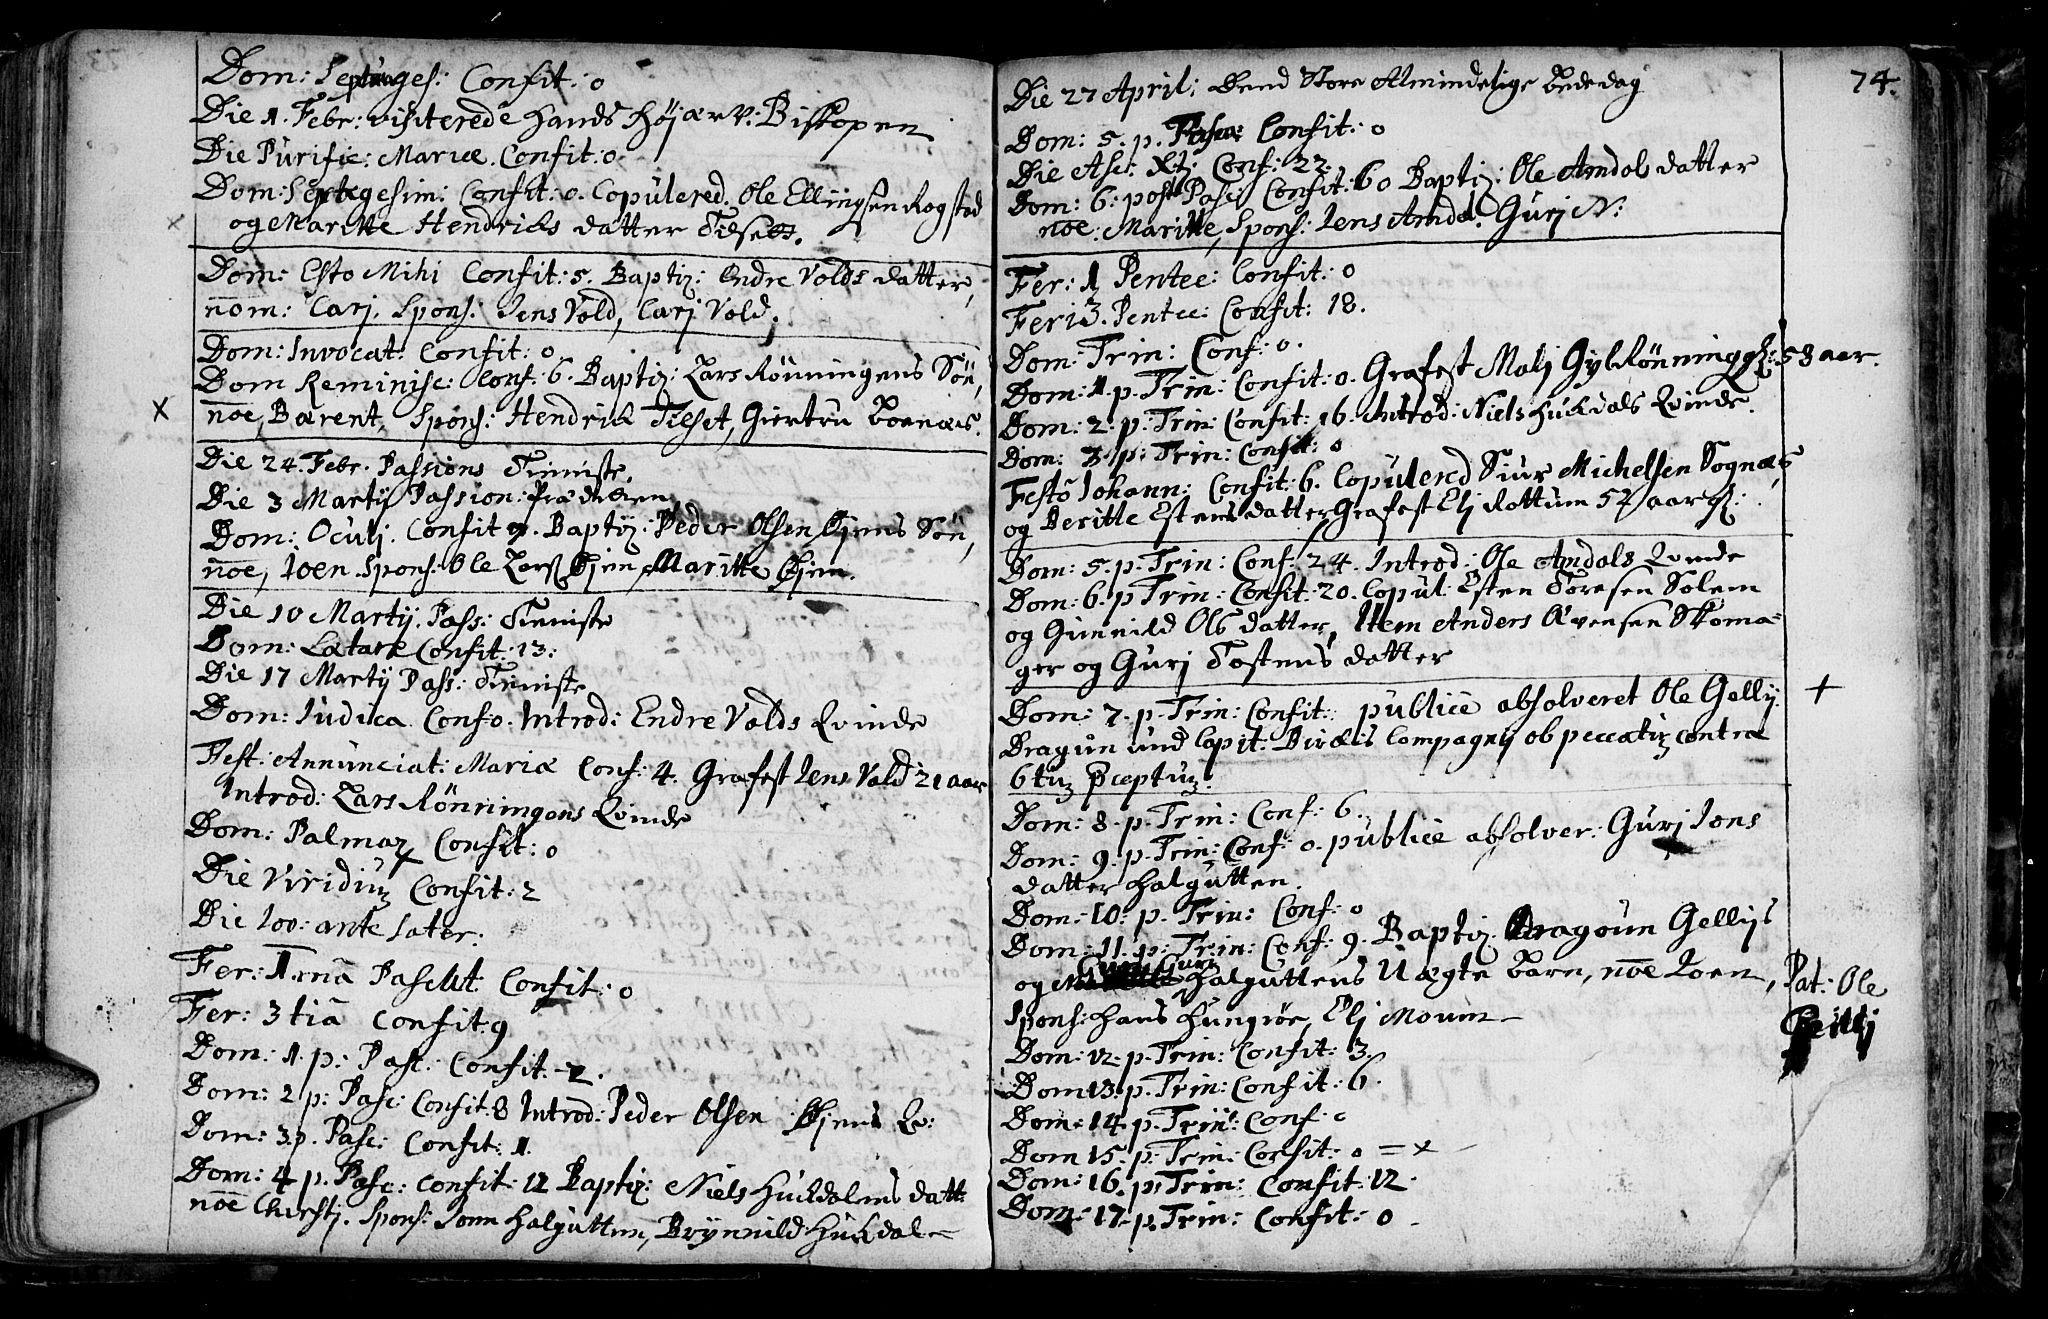 Dom: Septuages: Confit: 0
Die 1. Febr: visiterede Hands Højærv: Biskopen
Die Purific: Mariæ. Confit: 0.
Dom: Sexagesim: Confit: 0. Copulered. Ole Ellingsen Rogstad
x
og Maritte Hendrichs datter Tilsett.
Dom: Esto Mihi Confit: 5. Baptiz: Endre Volds datter,
nom: Carj. Spons: Jens Vold, Carj Vold.
Dom: Invocat: Confit: 0
Dom Reminisc: Conf: 6. Baptiz: Lars Rönningens Sön,
x
noe, Bærent. Spons: Hendrich Tilset, Giertru
Die 24. Febr. Passions Tieniste.
Die 3 Martij Passion: Prædicken
Dom: Oculj. Confit 9. Baptiz: Peder Olsen Øjens Sön,
noe, Joen. Spons: Ole Lars: Øjen, Maritte Øjen.
Die 10 Martij. Pass: Tieniste
Dom: Lætare Confit: 13.
Die 17 Martij Pass: Tieniste
Dom: Judica Conf: 0. Introd: Endre Volds Qvinde
Fest: Annunciat: Mariæ Conf: 4. Grafest Jens Vald 21 aar
Introd: Lars Rönningens Qvinde
Dom: Palmaz Confit: 0
Die Viridiuz Confit: 2
Die Jov: ante
Fer: 1.mā Paschat Confit: 0
Fer: 3 tiā Confit: 9
Dom: 1. p: Pasc: Confit - 2.
Dom: 2 p: Pasc: Confit: 8 Introd: Peder Olsen Øjens Qv:
Dom: 3 p. Pasc: Confit: 1.
Dom: 4 p. Pasc: Confit: 12 Baptiz: Niels Huckdalens datt
noe Cherstj. Spons: Jonn Halgutten, Brynnild Huckdal -
74.
Die 27 April: Dend Store Almindelige Bededag
Dom: 5. p. Pasc: Confit: 0
Die Asc: Xtj Conf: 22.
Dom: 6: post Pasc: Confit: 60 Baptiz: Ole Amdals datter
noe: Maritte, Spons: Jens Amdal. Gurj N:
Fer: 1 Pentec: Confit: 0
Feri 3. Pentec: Confit: 18.
Dom: Trin: Conf: 0.
Dom: 1. p. Trin: Confit: 0. Grafest Malj Gylrönning gl: 58 aar.
Dom: 2. p. Trin: Confit: 16. Introd: Niels Huckdals Qvinde.
Dom: 3. p: Trin: Confit: 0
Festo Johann: Confit: 6. Copulered Siur Michelsen Sognæs
og Beritte Estens datter Grafest Elj Rottum 52 aar gl:
Dom: 5. p. Trin: Conf: 24. Introd: Ole Amdals Qvinde
Dom: 6. p Trin: Confit: 20. Copul: Esten Toresen Solem
og Gunnild Ols datter, Item Anders Ævensen Skoma-
ger og Gurj Tostens datter
Dom: 7. p. Trin: Confit: publicè absolveret Ole Gellij
+
Dragun und Capit: Compagnij ob peccatuz contra
6tuz Pceptuz.
Dom: 8. p. Trin: Conf: 6.
Dom: 9. p. Trin: Conf: 0. publice absolver: Gurj Jons
datter Halgutten.
Dom: 10: p. Trin: Conf: 0
Dom: 11. p: Trin: Conf: 9. Baptiz. Dragoun Gellijs
og Gurj Halguttens Uægte Barn, noe Joen, Pat: Ole
Spons: Hans Hungnøe, Elj Mouum -
Geillj
Dom: 12. p. Trin: Confit: 3.
Dom 13. p. Trin: Confit: 6.
Dom 14. p. Trin: Conf: 0
Dom 15. p. Trin: Confit: 0 = x
Dom: 16. p. Trin: Confit: 12.
Dom: 17. p. Trin: Confit: 0 -